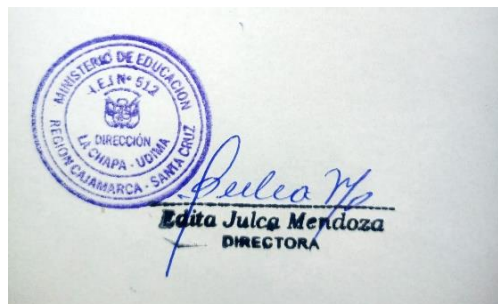 MINISTERIO DE EDUCACION
I.E.I Nº 512
DIRECCIÓN
LA CHAPA - UDIMA
REGION CAJAMARCA - SANTA CRUZ
Edita Julca Mendoza
DIRECTORA